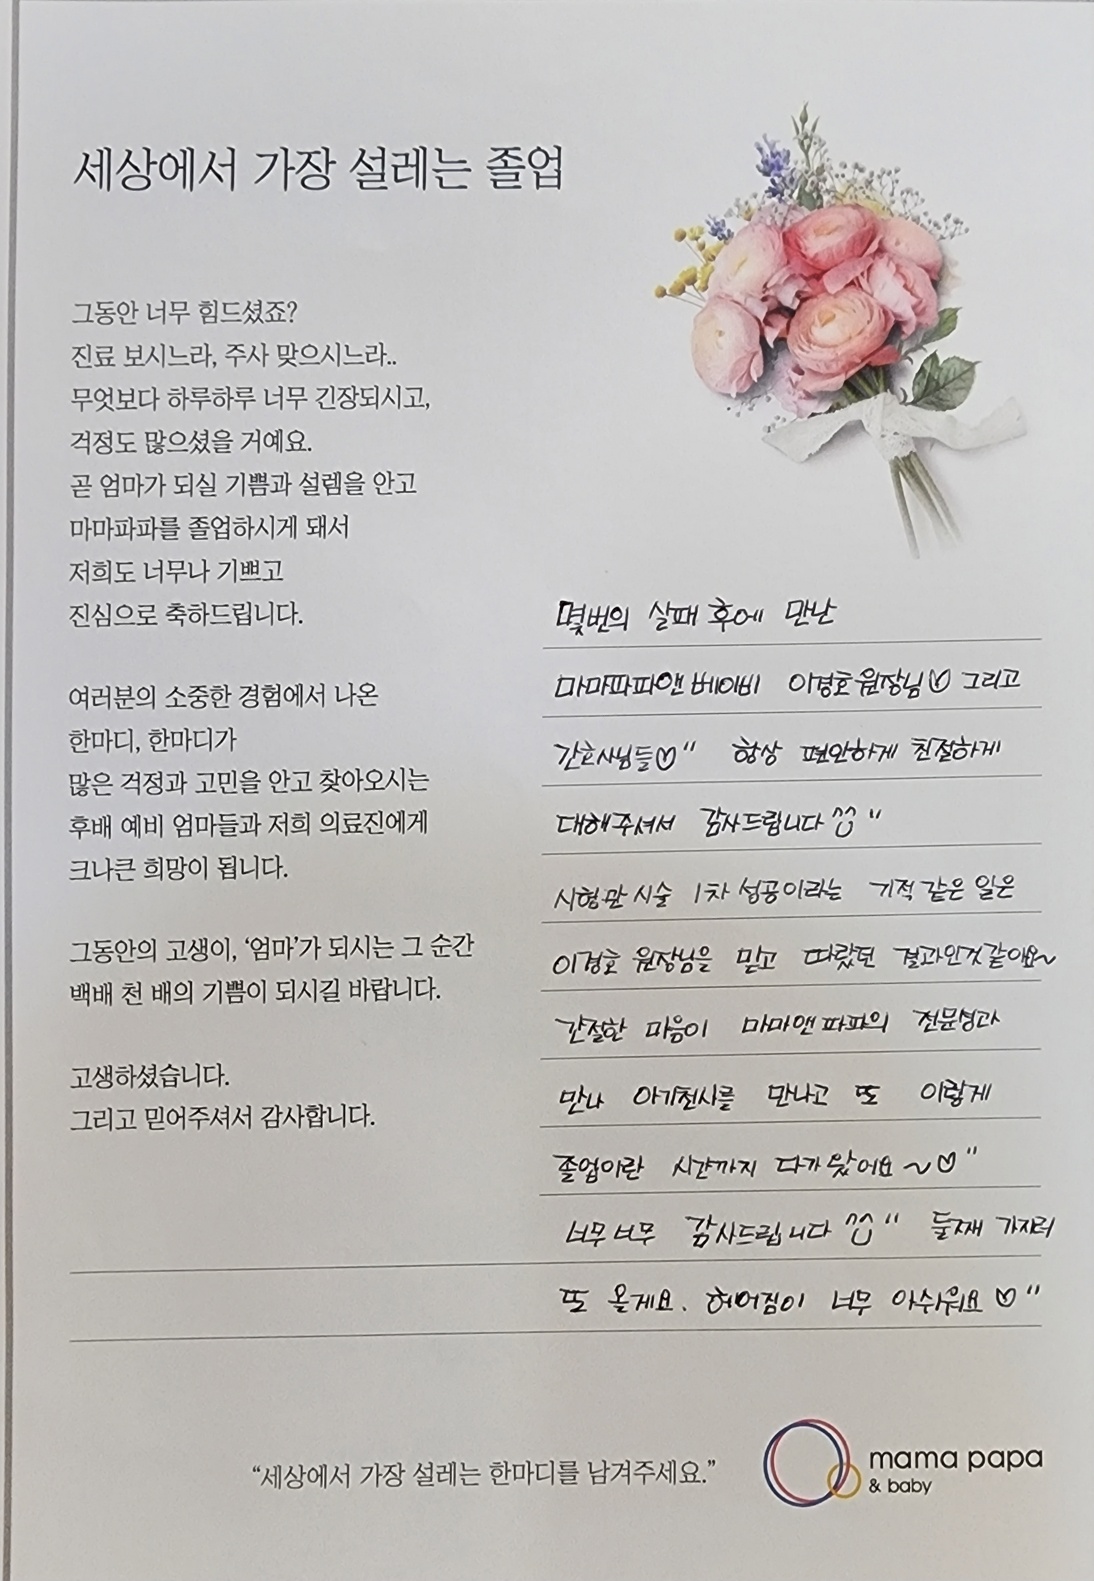 세상에서 가장 설레는 졸업
그동안 너무 힘드셨죠?
진료 보시느라, 주사 맞으시느라..
무엇보다 하루하루 너무 긴장되시고,
걱정도 많으셨을 거예요.
곧 엄마가 되실 기쁨과 설렘을 안고
마마파파를 졸업하시게 돼서
저희도 너무나 기쁘고
진심으로 축하드립니다.
여러분의 소중한 경험에서 나온
한마디, 한마디가
많은 걱정과 고민을 안고 찾아오시는
후배 예비 엄마들과 저희 의료진에게
크나큰 희망이 됩니다.
그동안의 고생이, ‘엄마’가 되시는 그 순간
백배 천 배의 기쁨이 되시길 바랍니다.
고생하셨습니다.
그리고 믿어주셔서 감사합니다.
몇번의 실패 후에 만난
마마파파앤베이비 이경호원장님♡ 그리고
간호사님들♡" 항상 편안하게 친절하게
대해주셔서 감사드립니다^^"
시험관 시술 1차 성공이라는 기적 같은 일은
이경호 원장님을 믿고 따랐던 결과인것같아요~
간절한 마음이 마마앤파파의 전문성과
만나 아기천사를 만나고 또 이렇게
졸업이란 시간까지 다가왔어요~♡"
너무너무 감사드립니다^^" 둘째 가지러
또 올게요. 헤어짐이 너무 아쉬워요♡"
“세상에서 가장 설레는 한마디를 남겨주세요.”
mama papa
& baby